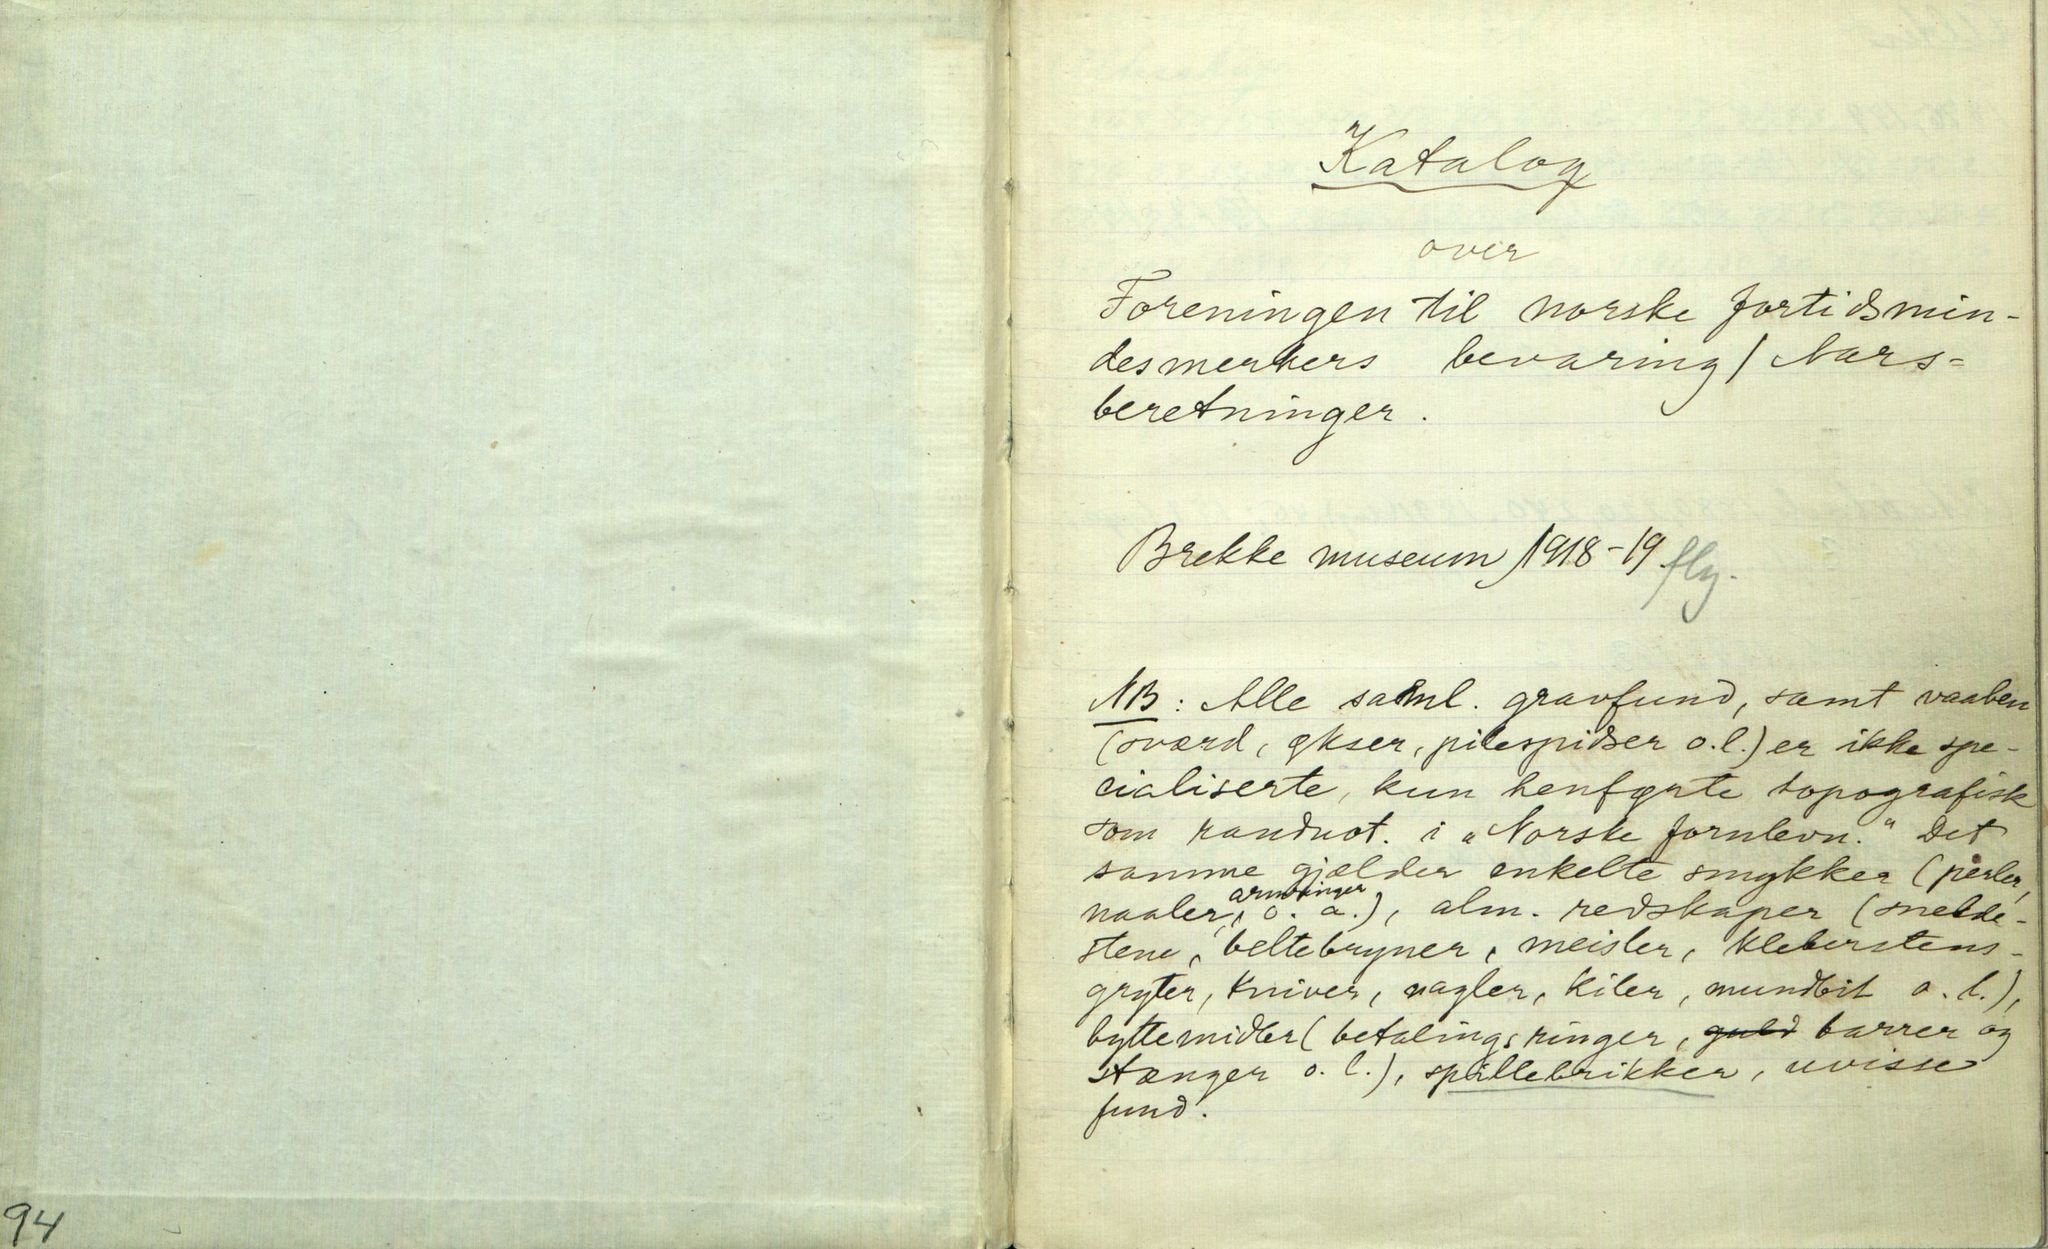 Katalog
over
Foreningen til norske fortidsmin-
desmerkers bevaring / Aars-
beretninger.
Brekke museum 1918-19
NB: Alle saml. gravfund, samt vaaben
(sværd, økser, pilespidser o.l.) er ikke spe-
cialiserte, kun henførte topografisk
som randnot. i "Norske fornlevn." Det
samme gjælder enkelte smykker (perler,
armringer
naaler, o. a.), alm. redskaper (snelde-
stene, beltebryner, meisler, kleberstens-
gryter, kniver, nagler, kiler, mundbit o. l.),
byttemidler (betalingsringer, guld barrer og
stænger o. l.), spillebrikker, uvisse
fund.
94